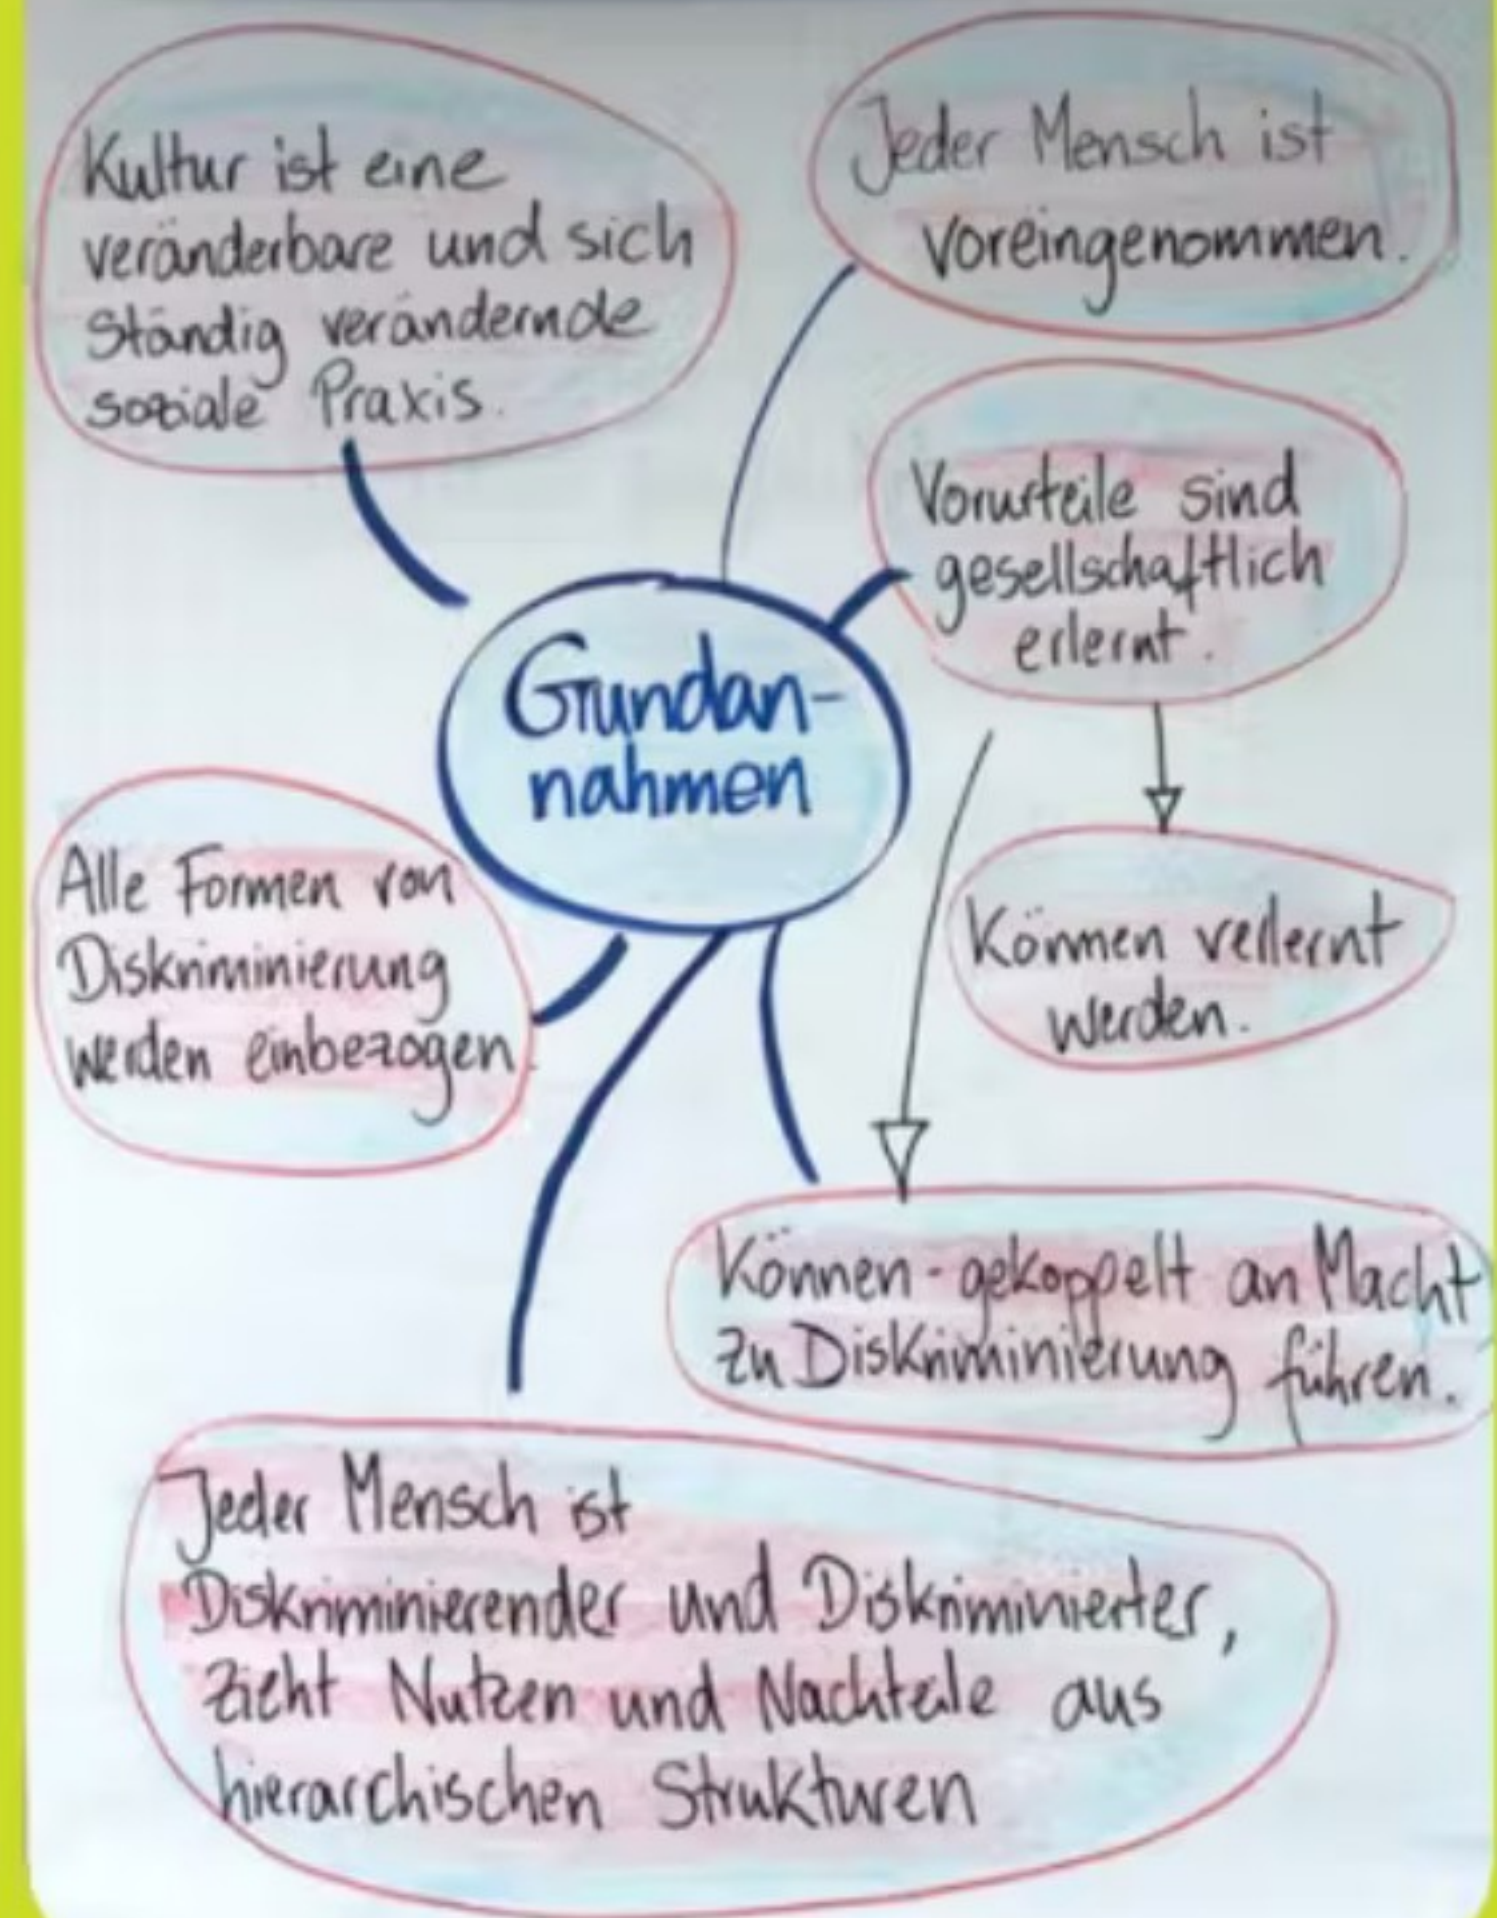 Kultur ist eine
veränderbare und sich
ständig verändernde
soziale Praxis.
Jeder Mensch ist
voreingenommen.
Vorurteile sind
gesellschaftlich
erlernt.
Grundan-
nahmen
Alle Formen von
Diskriminierung
werden einbezogen.
Können verlernt
werden.
Können - gekoppelt an Macht
zu Diskriminierung führen.
Jeder Mensch ist
Diskriminierender und Diskriminierter,
zieht Nutzen und Nachteile aus
hierarchischen Strukturen